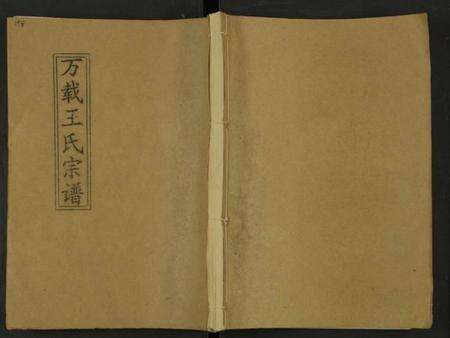 万载王氏宗谱